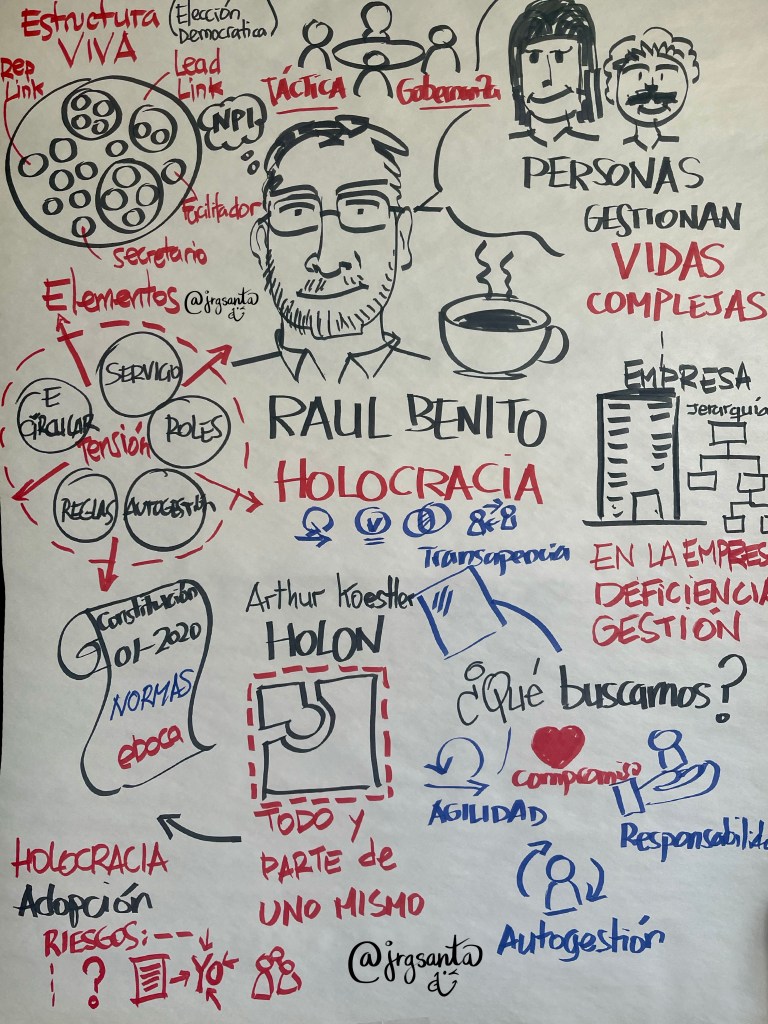 Estructura
VIVA
(Elección
Democratica)
Rep
Link
Lead
Link
NPI
Facilitador
Secretario
TÁCTICA
Gobernanza
PERSONAS
GESTIONAN
VIDAS
COMPLEJAS
Elementos
@jrgsanta
SERVICIO
E
CIRCULAR
Tensión
ROLES
REGLAS
AUTOGESTIÓN
RAUL BENITO
HOLOCRACIA
Transaperocia
EMPRESA
Jerarquía
EN LA EMPRESA
DEFICIENCIA
GESTIÓN
Constitución
01-2020
NORMAS
eboca
Arthur Koestler
HOLON
TODO y
PARTE de
UNO MISMO
¿Qué buscamos?
AGILIDAD
compromiso
Responsabilida
Autogestión
HOLOCRACIA
Adopción
RIESGOS:
? YO
@jrgsanta